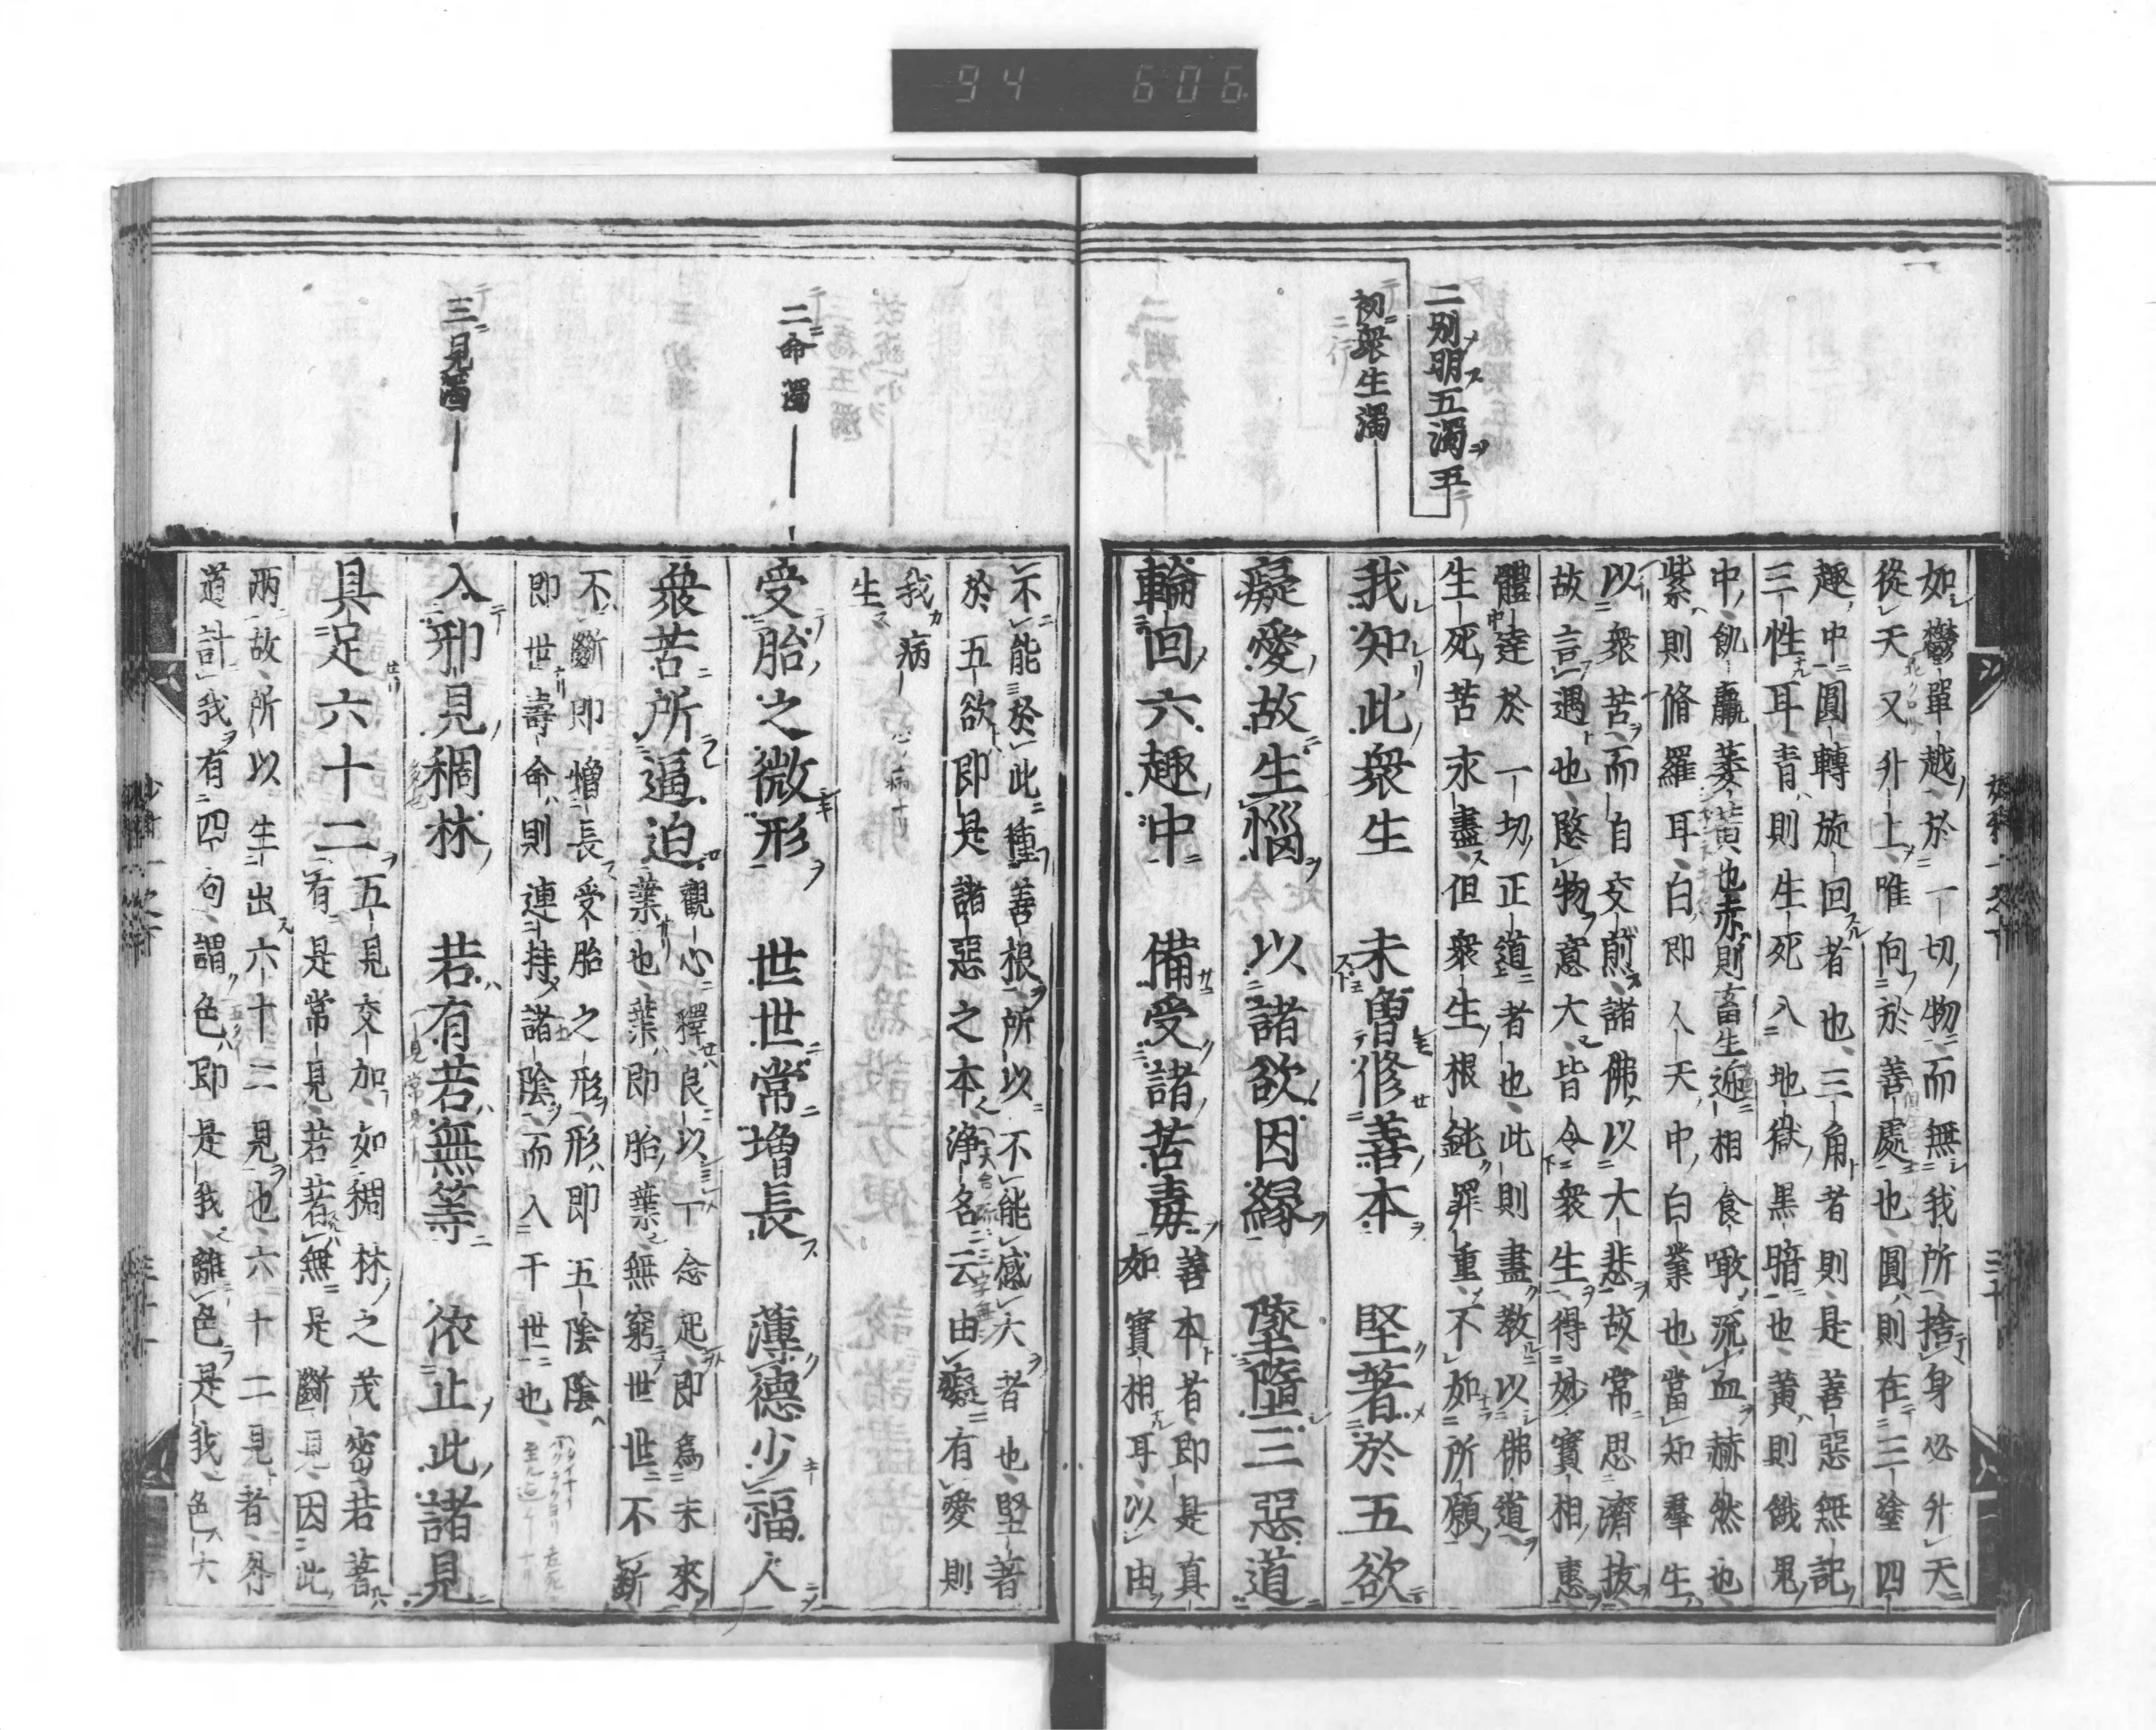 94 606
二別明五濁五
初衆生濁
如欝單越於一切物而無我所捨身必升天
從天又升上唯向於善處也圓則在三塗四
趣中圓轉旋回者也三角者則是善惡無記
三性耳青則生死入地獄黒暗也黄則餓鬼
中飢羸萎黄也赤則畜生遞相食噉流血赫然也
紫則脩羅耳白即人天中白業也當知羣生
以衆苦而自交煎諸佛以大悲故常思濟拔
故言遇也愍物意大皆令衆生得妙實相惠
體達於一切正道者也此則盡教以佛道
生死苦求盡但衆生根鈍罪重不如所願
我知此衆生 未曽修善本 堅著於五欲
癡愛故生惱 以諸欲因縁 墜墮三惡道
輪回六趣中 備受諸苦毒
善本者即是真
如實相耳以由
不能於此種善根所以不能感大者也堅著
於五欲即是諸惡之本浄名云由癡有愛則
我病
生
二命濁
受胎之微形 世世常増長 薄德少福人
衆苦所逼迫
觀心釋良以一念起即為未來
業也業即胎業無窮世世不斷
不斷即増長受胎之形形即五陰陰
即世壽命則連持諸陰而入于世也
三見濁
入邪見稠林 若有若無等 依止此諸見
具足六十二
五見交加如稠林之茂密若著
有是常見若著無是斷見因此
兩故所以生出六十二見也六十二見者外
道計我有四句謂色即是我離色是我色大